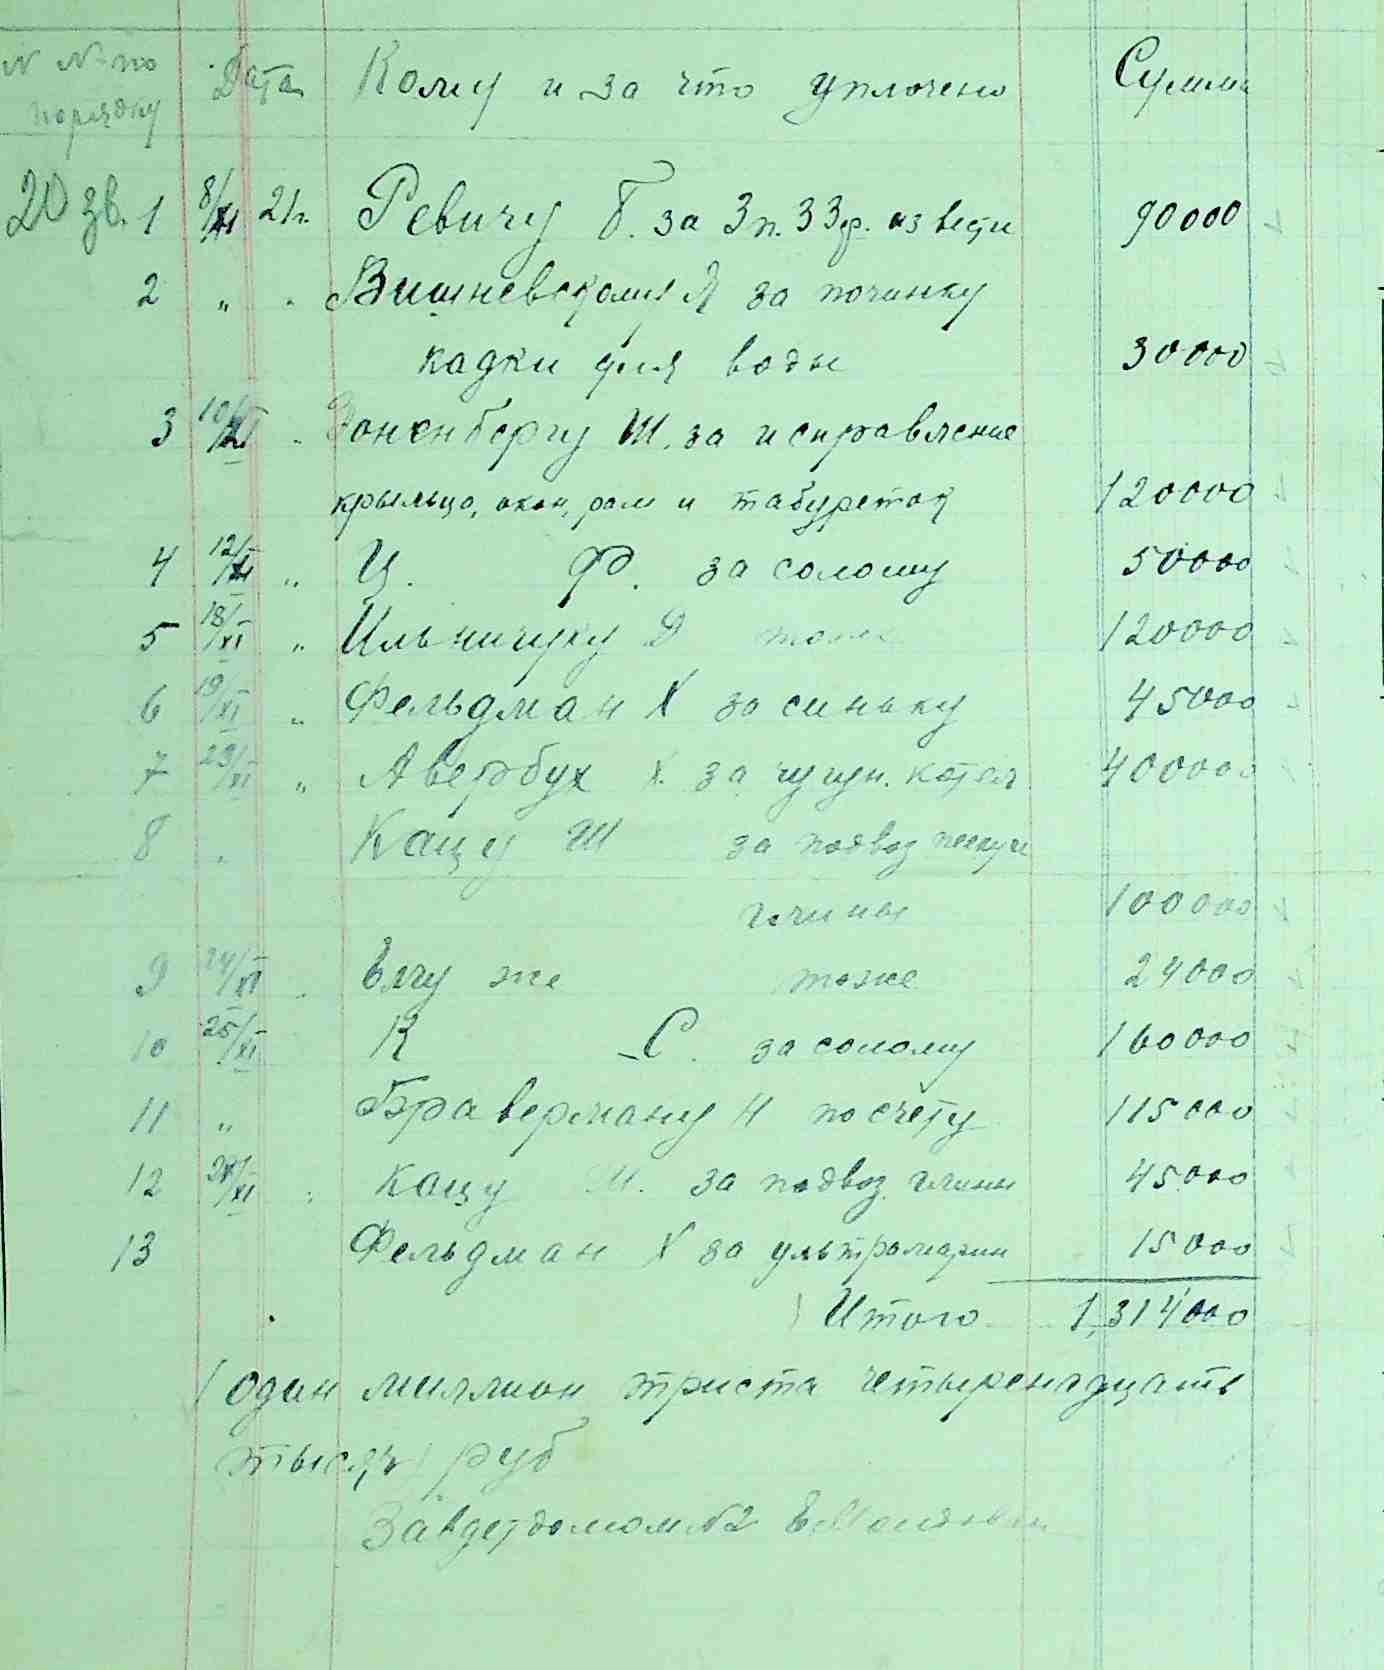 N N по порядку Дата Кому и за что уплочено Сумма
20 зв. 1 8/XI 21г. Ревичу Б. за 3 п. 33 ф. извести 90000
2 " " Вишневскому Я за починку
кадки для воды 30000
3 10/XI " Зоненбергу Ш. за исправление
крыльца, окон, рам и табуреток 120000
4 12/XI " Ц. Ф. за солому 50000
5 18/XI " Ильничуку Д тоже 120000
6 19/XI " Фельдман Х за синьку 45000
7 23/XI " Авербух Х. за чугун. котел 400000
8 " Кацу Ш за подвоз песку и
глины 100000
9 24/XI " Ему же тоже 24000
10 25/XI К С. за солому 160000
11 " Браверману Н по счету 115000
12 /XI " Кацу Ш. за подвоз глины 45000
13 Фельдман Х за ультрамарин 15000
Итого 1,314000
(один миллион триста четыренадцать
тысяч) руб
Завдетдомом N2